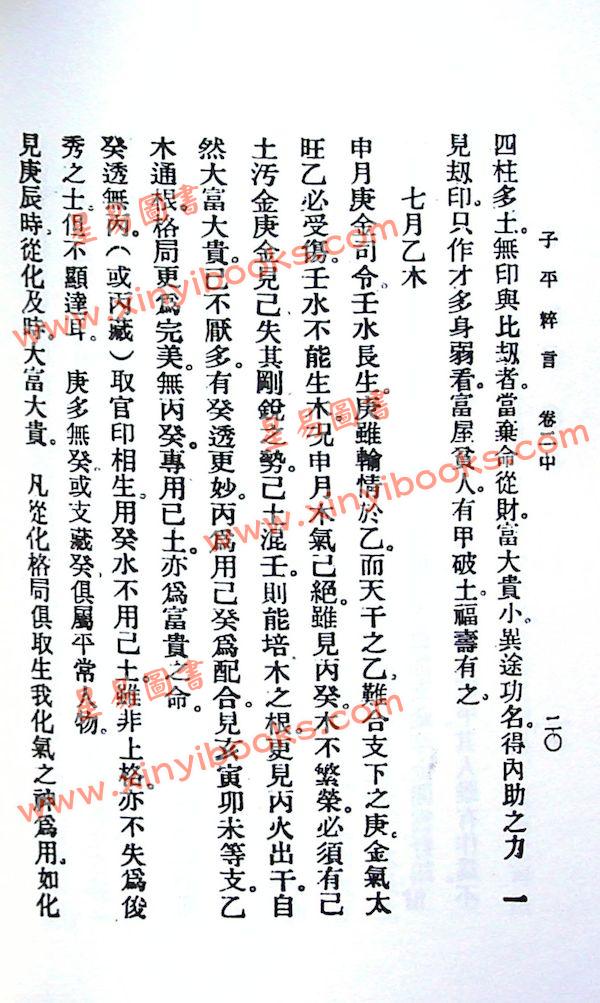 子平粹言　卷二中　二〇
四柱多土。無印與比刼者。當棄命從財。富大貴小。異途功名。得內助之力　一
見刼印。只作才多身弱看。富屋貧人。有甲破土。福壽有之。
七月乙木
申月庚金司令。壬水長生。庚雖輸情於乙。而天干之乙。難合支下之庚。金氣太
旺。乙必受傷。壬水不能生木。況申月木氣已絕。雖見丙癸。木不繁榮。必須有己
土污金。庚金見己。失其剛銳之勢。己土混壬。則能培木之根。更見丙火出干。自
然大富大貴。己不厭多。有癸透更妙。丙爲用。己癸爲配合。見亥寅卯未等支。乙
木通根。格局更爲完美。無丙癸。專用己土。亦爲富貴之命。
癸透無丙。（或丙藏）取官印相生。用癸水不用己土。雖非上格。亦不失爲俊
秀之士。但不顯達耳。　庚多無癸。或支藏癸。俱屬平常人物。
見庚辰時。從化及時。大富大貴。　凡從化格局。俱取生我化氣之神爲用。如化
星易圖書
www.xinyibooks.com
星易圖書
www.xinyibooks.com
星易圖書
www.xinyibooks.com